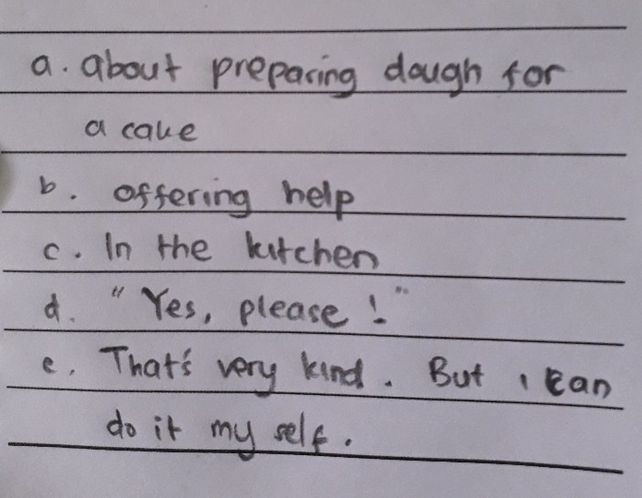 a. about preparing dough for
a cake
b. offering help
c. In the kitchen
d. "Yes, please!"
e. That's very kind. But i can
do it my self.